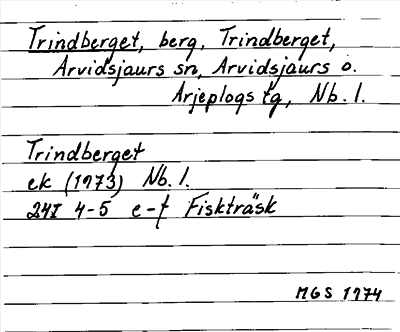 Trindberget, berg, Trindberget,
Arvidsjaurs sn, Arvidsjaurs o.
Arjeplogs tg, Nb. l.
Trindberget
ek (1973) Nb. l.
24I 4-5 e-f Fiskträsk
MGS 1974